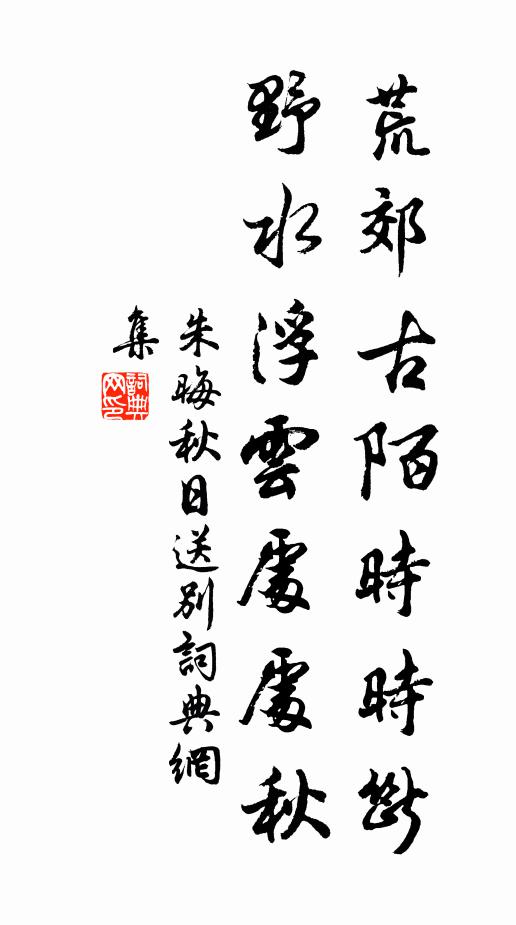 荒郊古陌時時斷
野水浮雲處處秋
朱晦秋日送別詞典網
集
詞典
网印